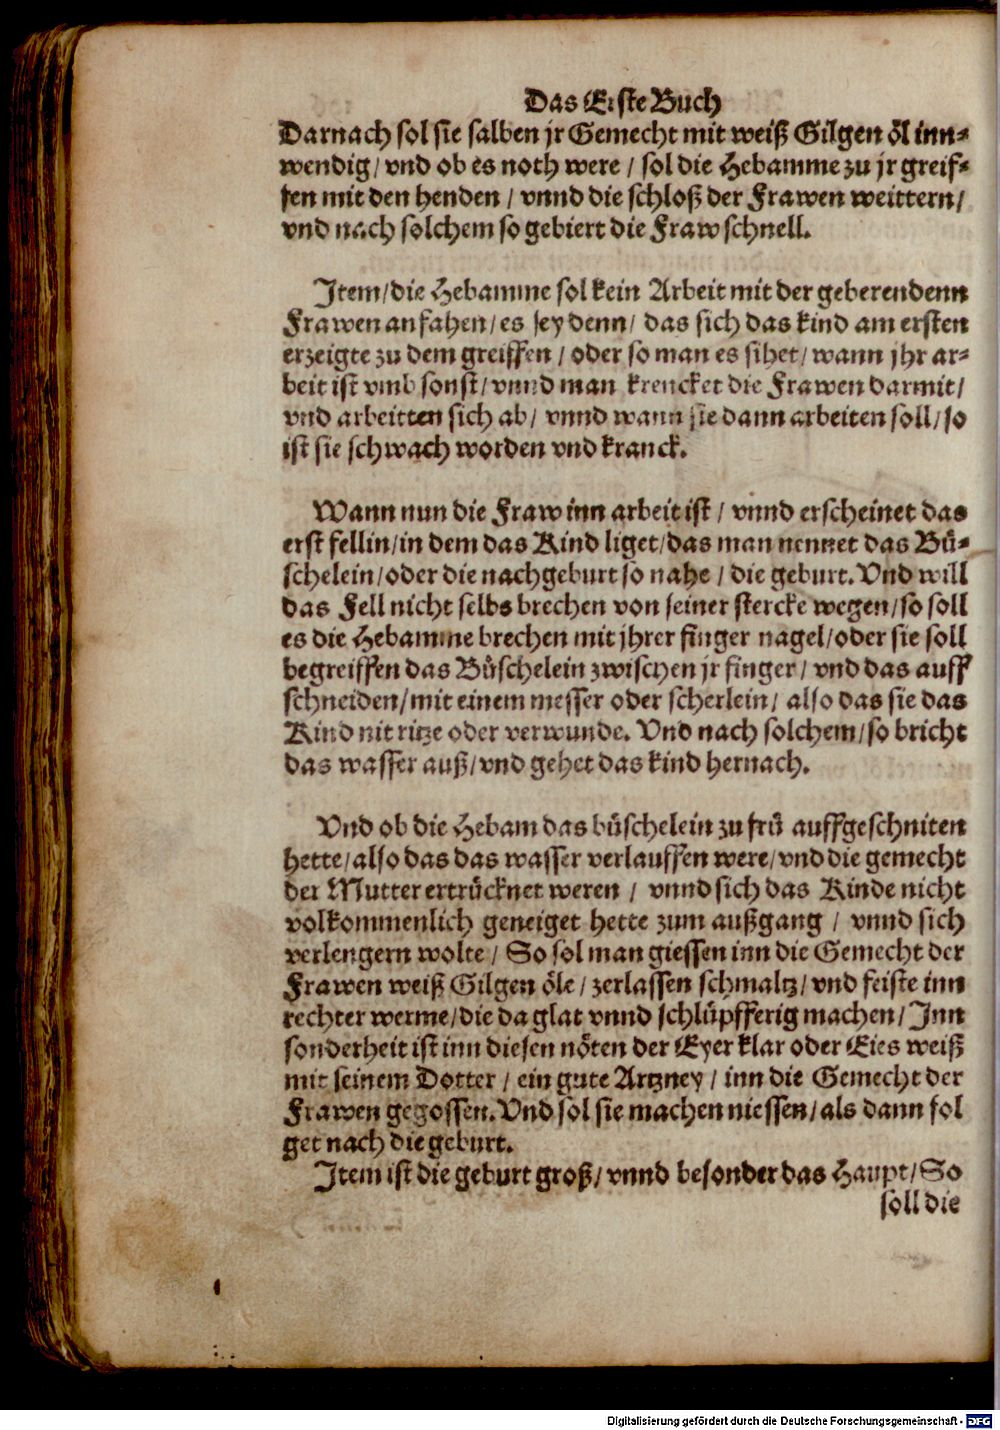 Das Erste Buch
Darnach sol sie salben jr Gemecht mit weiß Gilgen öl inn-
wendig / vnd ob es noth were / sol die Hebamme zu jr greif-
fen mit den henden / vnnd die schloß der Frawen weittern /
vnd nach solchem so gebiert die Fraw schnell.
Item / die Hebamme sol kein Arbeit mit der geberendenn
Frawen anfahen / es sey denn / das sich das kind am ersten
erzeigte zu dem greiffen / oder so man es sihet / wann jhr ar-
beit ist vmb sonst / vnnd man krencket die Frawen darmit /
vnd arbeitten sich ab / vnnd wann sie dann arbeiten soll / so
ist sie schwach worden vnd kranck.
Wann nun die Fraw inn arbeit ist / vnnd erscheinet das
erst fellin / in dem das Kind liget / das man nennet das Bü-
schelein / oder die nachgeburt so nahe / die geburt. Vnd will
das Fell nicht selbs brechen von seiner stercke wegen / so soll
es die Hebamme brechen mit jhrer finger nagel / oder sie soll
begreiffen das Büschelein zwischen jr finger / vnd das auff
schneiden / mit einem messer oder scherlein / also das sie das
Kind nit ritze oder verwunde. Vnd nach solchem / so bricht
das wasser auß / vnd gehet das kind hernach.
Vnd ob die Hebam das büschelein zu frü auffgeschniten
hette / also das das wasser verlauffen were / vnd die gemecht
der Mutter ertrücknet weren / vnnd sich das Kinde nicht
volkommenlich geneiget hette zum außgang / vnnd sich
verlengern wolte / So sol man giessen inn die Gemecht der
Frawen weiß Gilgen öle / zerlassen schmaltz / vnd feiste inn
rechter werme / die da glat vnnd schlüpfferig machen / Inn
sonderheit ist inn diesen nöten der Eyer klar oder Eies weiß
mit seinem Dotter / ein gute Artzney / inn die Gemecht der
Frawen gegossen. Vnd sol sie machen niessen / als dann fol
get nach die geburt.
Item ist die geburt groß / vnnd besonder das Haupt / So
soll die
Digitalisierung gefördert durch die Deutsche Forschungsgemeinschaft - DFG